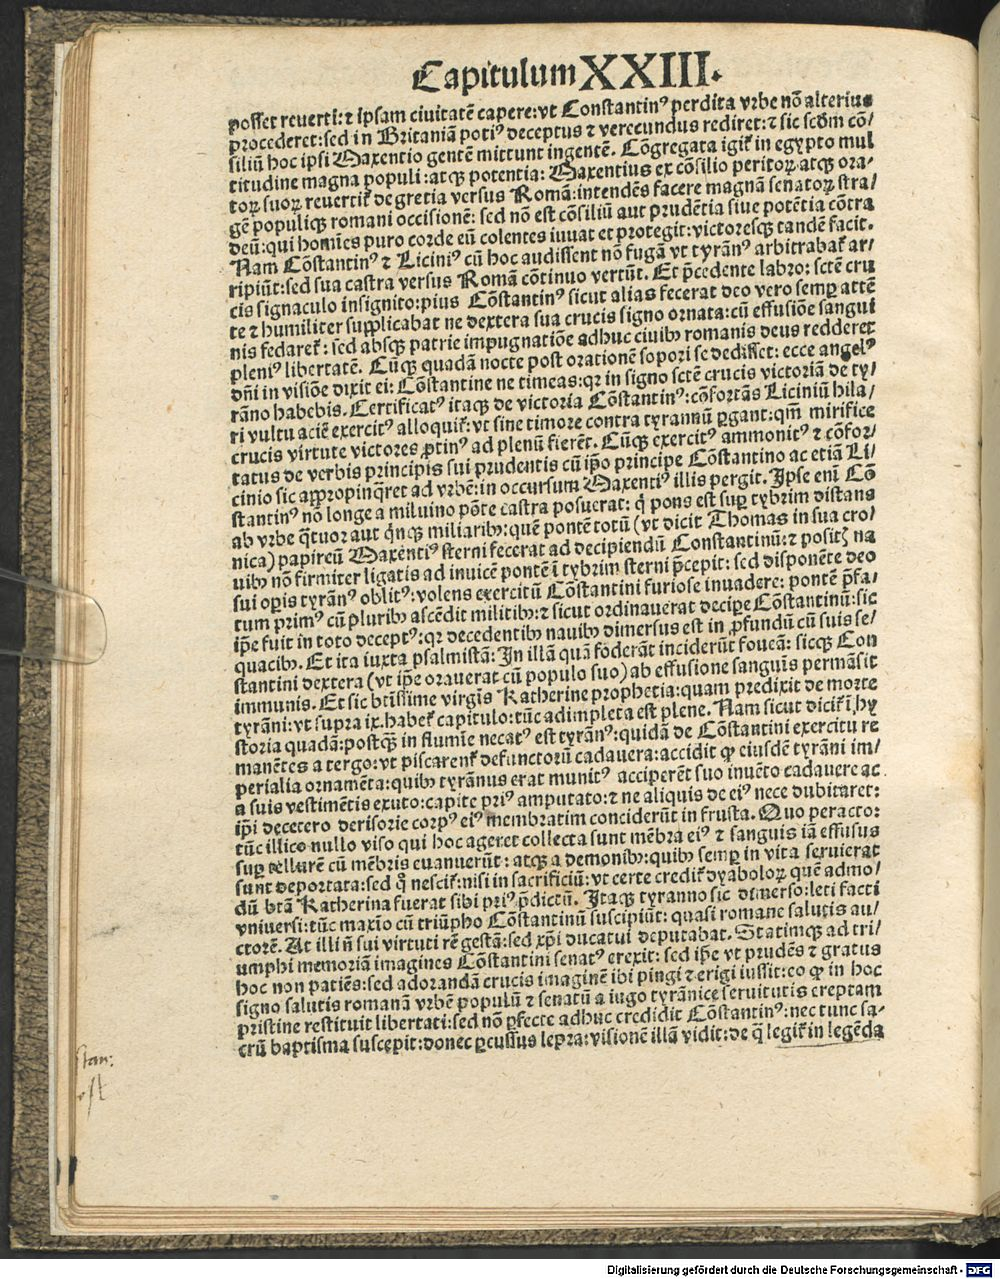 Capitulum XXIII.
posset reuerti: ⁊ ipsam ciuitatẽ capere: vt Constantinꝰ perdita vrbe nõ alterius
procederet: sed in Britaniã potiꝰ deceptus ⁊ verecundus rediret: ⁊ sic scdm cõ/
siliũ hoc ipsi Maxentio gentẽ mittunt ingentẽ. Cõgregata igit᷑ in egypto mul
titudine magna populi: atqꝫ potentia: Maxentius ex cõsilio peritoꝝ atqꝫ ora/
toꝝ suoꝝ reuertit᷑ de gretia versus Romã: intendẽs facere magnã senatoꝝ stra/
gẽ populiqꝫ romani occisionẽ: sed nõ est cõsiliũ aut prudẽtia siue potẽtia cõtra
deũ: qui homĩes puro corde eũ colentes iuuat et protegit: victoresqꝫ tandẽ facit.
Nam Cõstantinꝰ ⁊ Liciniꝰ cũ hoc audissent nõ fugã vt tyrãnꝰ arbitrabat᷑ ar/
ripiũt: sed sua castra versus Romã cõtinuo vertũt. Et p̃cedente labro: sctẽ cru
cis signaculo insignito: pius Cõstantinꝰ sicut alias fecerat deo vero semꝑ attẽ
te ⁊ humiliter supplicabat ne dextera sua crucis signo ornata: cũ effusiõe sangui
nis fedaret᷑: sed absqꝫ patrie impugnatiõe adhuc ciuibꝫ romanis deus redderet
pleniꝰ libertatẽ. Cũqꝫ quadã nocte post orationẽ sopori se dedisset: ecce angelꝰ
dñi in visiõe dixit ei: Cõstantine ne timeas: qꝛ in signo sctẽ crucis victoriã de ty/
rãno habebis. Certificatꝰ itaqꝫ de victoria Cõstantinꝰ: cõfortãs Liciniũ hila/
ri vultu aciẽ exercitꝰ alloquit᷑: vt sine timore contra tyrannũ ꝑgant: qm̃ mirifice
crucis virtute victores ꝓtinꝰ ad plenũ fierẽt. Cũqꝫ exercitꝰ ammonitꝰ ⁊ cõfor/
tatus de verbis principis sui prudentis cũ ip̃o principe Cõstantino ac etiã Li/
cinio sic appropinq̃ret ad vrbẽ: in occursum Maxentiꝰ illis pergit. Ipse eni Cõ
stantinꝰ nõ longe a miluino põte castra posuerat: q̃ pons est suꝑ tybrim distans
ab vrbe q̃tuor aut q̃nqꝫ miliaribꝫ: quẽ pontẽ totũ (vt dicit Thomas in sua cro/
nica) papireũ Maxẽtiꝰ sterni fecerat ad decipiendũ Constantinũ: ⁊ positꝭ na
uibꝫ nõ firmiter ligatis ad inuicẽ pontẽ ĩ tybrim sterni p̃cepit: sed disponẽte deo
sui oꝑis tyrãnꝰ oblitꝰ: volens exercitũ Cõstantini furiose inuadere: pontẽ p̃fa/
tum primꝰ cũ pluribꝫ ascẽdit militibꝫ: ⁊ sicut ordinauerat deciꝑe Cõstantinũ: sic
ip̃e fuit in toto deceptꝰ: qꝛ decedentibꝫ nauibꝫ dimersus est in ꝓfundũ cũ suis se/
quacibꝫ. Et ita iuxta psalmistã: In illã quã foderãt inciderũt foueã: sicqꝫ Con
stantini dextera (vt ip̃e orauerat cũ populo suo) ab effusione sanguĩs permãsit
immunis. Et sic btĩssĩme virgĩs Katherine prophetia: quam predixit de morte
tyrãni: vt supra ix. habet᷑ capitulo: tũc adimpleta est plene. Nam sicut dicit᷑ ĩ hy
storia quadã: postqꝫ̃ in flumĩe necatꝰ est tyrãnꝰ: quidã de Cõstantini exercitu re
manẽtes a tergo: vt piscarent᷑ defunctorũ cadauera: accidit ꝙ eiusdẽ tyrãni im/
perialia ornamẽta: quibꝫ tyrãnus erat munitꝰ acciperẽt suo inuẽto cadauere ac
a suis vestimẽtis exuto: capite priꝰ amputato: ⁊ ne aliquis de eiꝰ nece dubitaret:
ip̃i decetero derisorie corpꝰ eiꝰ membratim conciderũt in frusta. Quo peracto:
tũc illico nullo viso qui hoc ageret collecta sunt mẽbra eiꝰ ⁊ sanguis iã effusus
suꝑ tellurẽ cũ mẽbris euanuerũt: atqꝫ a demonibꝫ: quibꝫ semꝑ in vita seruierat
sunt deportata: sed q̊ nescit᷑: nisi in sacrificiũ: vt certe credit᷑ dyaboloꝝ quẽ admo/
dũ btã Katherina fuerat sibi priꝰ p̃dictũ. Itaqꝫ tyranno sic dimerso: leti facti
vniuersi: tũc maxĩo cũ triũpho Cõstantinũ suscipiũt: quasi romane salutis au/
ctorẽ. At illi ñ sui virtuti rẽ gestã: sed xp̃i ducatui deputabat. Statimqꝫ ad tri/
umphi memoriã imagines Cõstantini senatꝰ erexit: sed ip̃e vt prudẽs ⁊ gratus
hoc non patiẽs: sed adorandã crucis imaginẽ ibi pingi ⁊ erigi iussit: eo ꝙ in hoc
signo salutis romanã vrbẽ populũ ⁊ senatũ a iugo tyrãnice seruitutis ereptam
pristine restituit libertati: sed nõ ꝑfecte adhuc credidit Cõstantinꝰ: nec tunc sa-
crũ baptisma suscepit: donec ꝑcussus lepra: visionẽ illã vidit: de q̃ legit᷑ in legẽda
stan:
est
Digitalisierung gefördert durch die Deutsche Forschungsgemeinschaft - DFG